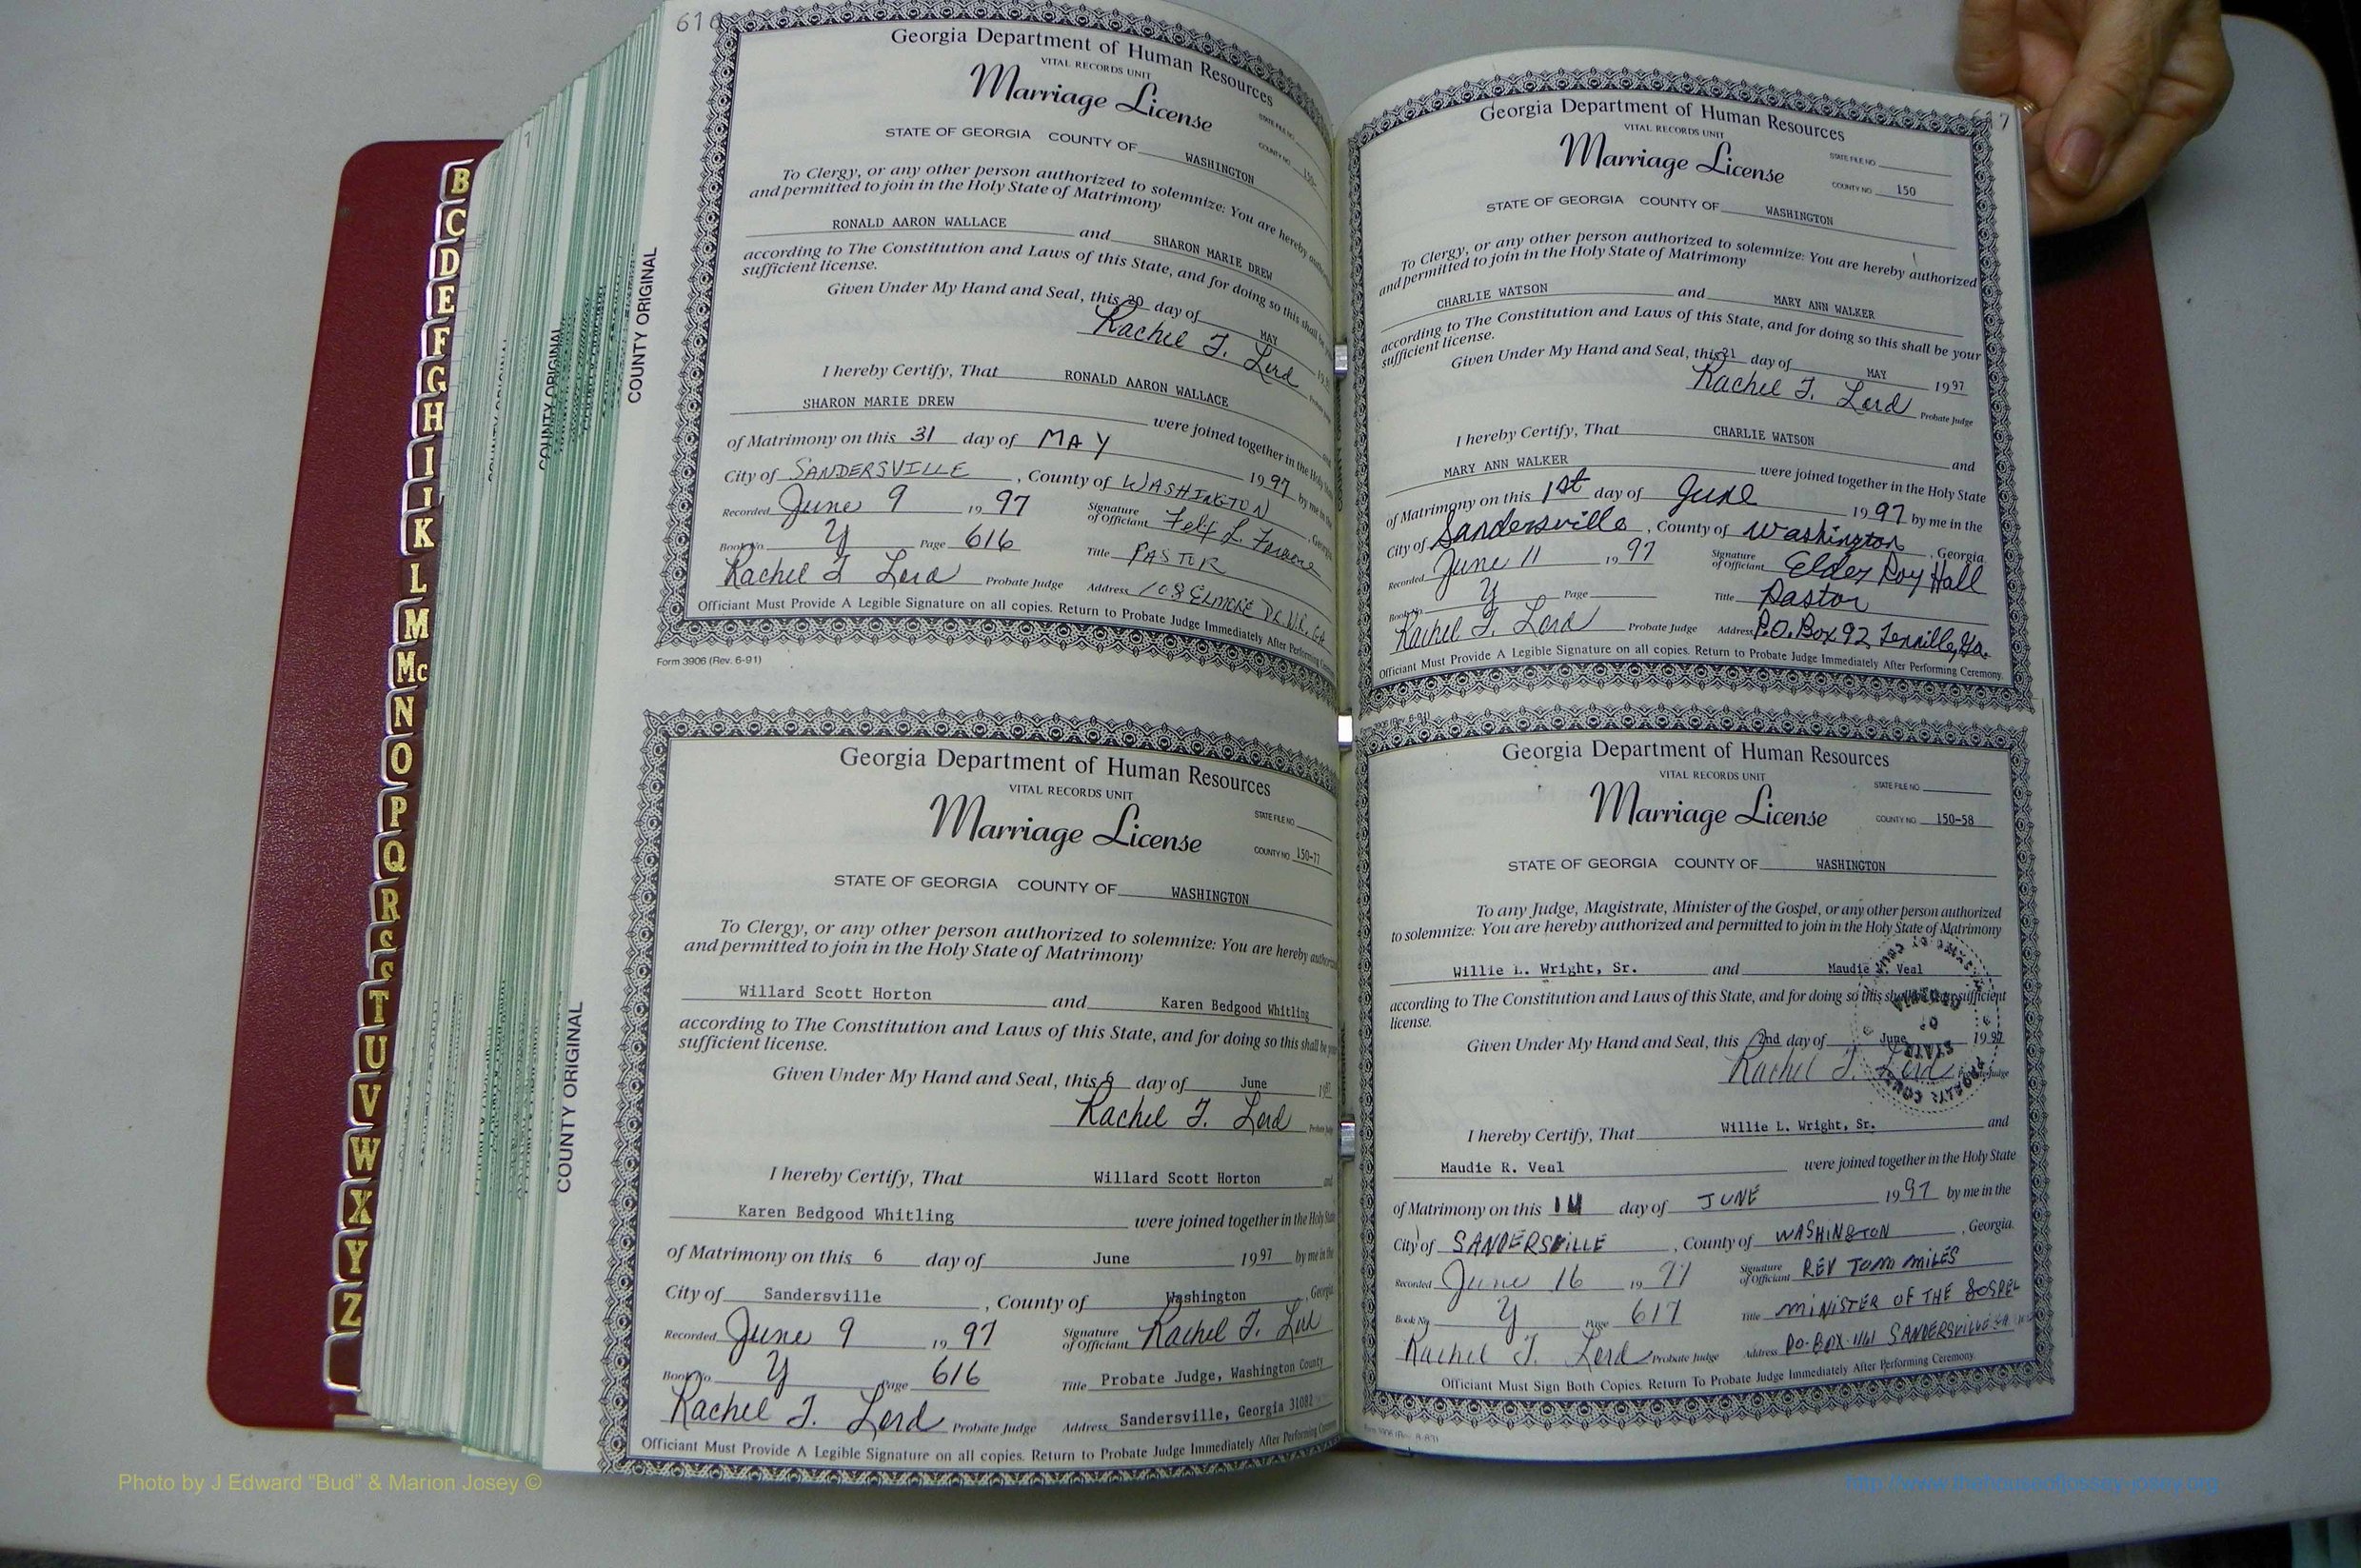 616
Georgia Department of Human Resources
VITAL RECORDS UNIT
Marriage License
STATE FILE NO.
COUNTY NO. 150-
STATE OF GEORGIA COUNTY OF WASHINGTON
To Clergy, or any other person authorized to solemnize: You are hereby
and permitted to join in the Holy State of Matrimony
RONALD AARON WALLACE and SHARON MARIE DREW
according to The Constitution and Laws of this State, and for doing so this shall be
sufficient license.
Given Under My Hand and Seal, this 20 day of MAY
Rachel T. Lord
I hereby Certify, That RONALD AARON WALLACE
SHARON MARIE DREW were joined together in the Holy
of Matrimony on this 31 day of MAY 1997 by me in the
City of SANDERSVILLE, County of WASHINGTON, Georgia
Recorded June 9 1997 Signature of Officiant Felix L.
Book No. Y Page 616 Title PASTOR
Rachel T Lord Probate Judge Address 108 ELMORE DR.
Officiant Must Provide A Legible Signature on all copies. Return to Probate Judge Immediately After Performing
Form 3906 (Rev. 6-91)
COUNTY ORIGINAL
Georgia Department of Human Resources
VITAL RECORDS UNIT
Marriage License
STATE FILE NO.
COUNTY NO. 150-77
STATE OF GEORGIA COUNTY OF WASHINGTON
To Clergy, or any other person authorized to solemnize: You are hereby
and permitted to join in the Holy State of Matrimony
Willard Scott Horton and Karen Bedgood Whitling
according to The Constitution and Laws of this State, and for doing so this shall be your
sufficient license.
Given Under My Hand and Seal, this 6 day of June 1997
Rachel T. Lord
I hereby Certify, That Willard Scott Horton and
Karen Bedgood Whitling were joined together in the Holy State
of Matrimony on this 6 day of June 1997 by me in the
City of Sandersville, County of Washington, Georgia
Recorded June 9 1997 Signature of Officiant Rachel T. Lord
Book No. Y Page 616 Title Probate Judge, Washington County
Rachel T. Lord Probate Judge Address Sandersville, Georgia 31082
Officiant Must Provide A Legible Signature on all copies. Return to Probate Judge Immediately After Performing
COUNTY ORIGINAL
617
Georgia Department of Human Resources
VITAL RECORDS UNIT
Marriage License
STATE FILE NO.
COUNTY NO. 150
STATE OF GEORGIA COUNTY OF WASHINGTON
To Clergy, or any other person authorized to solemnize: You are hereby authorized
and permitted to join in the Holy State of Matrimony
CHARLIE WATSON and MARY ANN WALKER
according to The Constitution and Laws of this State, and for doing so this shall be your
sufficient license.
Given Under My Hand and Seal, this 21 day of MAY 1997
Rachel T. Lord Probate Judge
I hereby Certify, That CHARLIE WATSON and
MARY ANN WALKER were joined together in the Holy State
of Matrimony on this 1st day of June 1997 by me in the
City of Sandersville, County of Washington, Georgia
Recorded June 11 1997 Signature of Officiant Elder Roy Hall
Book No. Y Page Title Pastor
Rachel T. Lord Probate Judge Address P.O. Box 92, Tennille, Ga.
Officiant Must Provide A Legible Signature on all copies. Return to Probate Judge Immediately After Performing Ceremony.
3906 (Rev. 6-91)
Georgia Department of Human Resources
VITAL RECORDS UNIT
Marriage License
STATE FILE NO.
COUNTY NO. 150-58
STATE OF GEORGIA COUNTY OF WASHINGTON
To any Judge, Magistrate, Minister of the Gospel, or any other person authorized
to solemnize: You are hereby authorized and permitted to join in the Holy State of Matrimony
Willie L. Wright, Sr. and Maudie R. Veal
according to The Constitution and Laws of this State, and for doing so this shall be your sufficient
license.
Given Under My Hand and Seal, this 2nd day of June 1997
Rachel T. Lord Probate Judge
I hereby Certify, That Willie L. Wright, Sr. and
Maudie R. Veal were joined together in the Holy State
of Matrimony on this 14 day of JUNE 1997 by me in the
City of SANDERSVILLE, County of WASHINGTON, Georgia.
Recorded June 16 1997 Signature of Officiant REV TOM MILES
Book No. Y Page 617 Title MINISTER OF THE GOSPEL
Rachel T. Lord Probate Judge Address PO-BOX-1161 SANDERSVILLE GA
Officiant Must Sign Both Copies. Return To Probate Judge Immediately After Performing Ceremony.
B
C
D
E
F
G
H
I
K
L
M
Mc
N
O
P
Q
R
S
T
U
V
W
X
Y
Z
Photo by J Edward “Bud” & Marion Josey ©
http://www.thehouseofjossey-josey.org